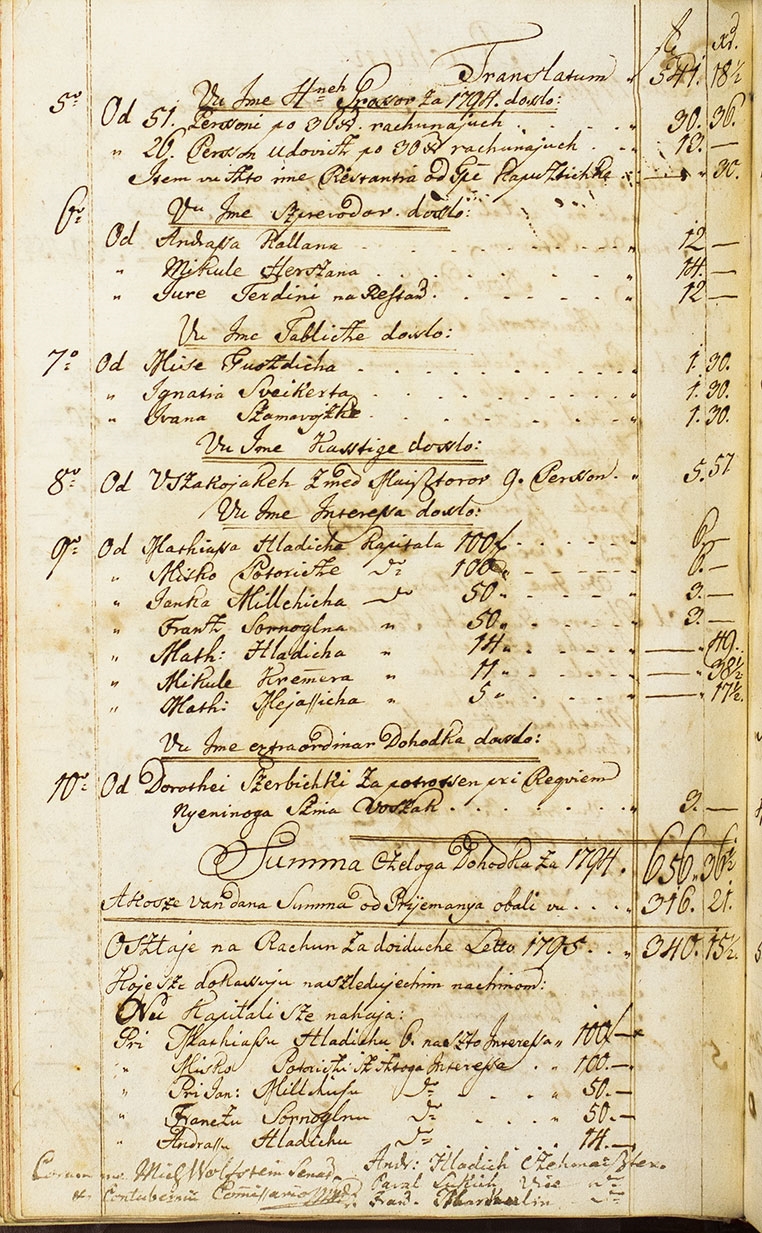 fl xr.
Translatum " 541. 18½
5to Vu Ime Hneh Grossor za 1794. doslo:
Od 51. Perssoni po 36 xr. rachunajuch . . . " 30. 36.
" 26. Persson udovitz po 30 xr rachunajuch . . 13. —
Item vu isto ime Restantia od Gspe Kapusztichka . . " — " 30.
6to Vu Ime Szprevodov. doslo:
Od Andrassa Kallana . . . " 12 —
" Mikule Herszana . . . " 14. —
" Jure Ferdini na Restan. . . . " 12 —
Vu Ime Tablicze doslo:
7mo Od Mise Guszdicha . . . " 1. 30.
" Ignatia Sveikerta . . . " 1. 30.
" Ivana Szamovojzke . . . " 1. 30.
Vu Ime Kasstige doslo:
8vo Od Vszakojakeh zmed Maisztorov 9. Persson. " 5. 57
Vu Ime Interessa doslo:
9no Od Mathiassa Hladicha Kapitala 100f . . . 6. —
" Misko Potoricze do 100 " . . . 6. —
" Janka Millchicha do 50 " . . . 3. —
" Frantz Sornoglna " 50 " . . . 3. —
" Math: Hladicha " 14 " . . . — " 49.
" Mikule Kremera " 11 " . . . — " 38½
" Math: Mejassicha " 5 " . . . — " 17½.
Vu Ime extraordinar Dohodka doslo:
10mo Od Dorothei Szerbichki za potrossen pri Requiem
Nyeninoga Szina Voszak . . . " 3. —
Summa Czeloga Dohodka za 1794. 656. 36½
Akosze van dana Summa od Prijemanya obali vu . . . " 316. 21.
Osztaje na Rachun za doiduche Letto 1795 . . " 340. 15½.
Koje sze dokassuju naszledujechim nachinom:
Vu Kapitali sze nahaja:
Pri Mathiassu Hladichu 6. na szto Interessa " 100f —
" Misko Potoriczki Iztoga Interessa . . " 100. —
" Pri Jan: Millchichu do . . . " 50. —
" Franczu Sornoglnu do . . . " 50. —
" Andrassu Hladichu do . . . 14. —
Coram me Mich Wolfstein Senat. Andr: Hladich Czehmaiszter.
Contubernii Comissario Paval Vice do